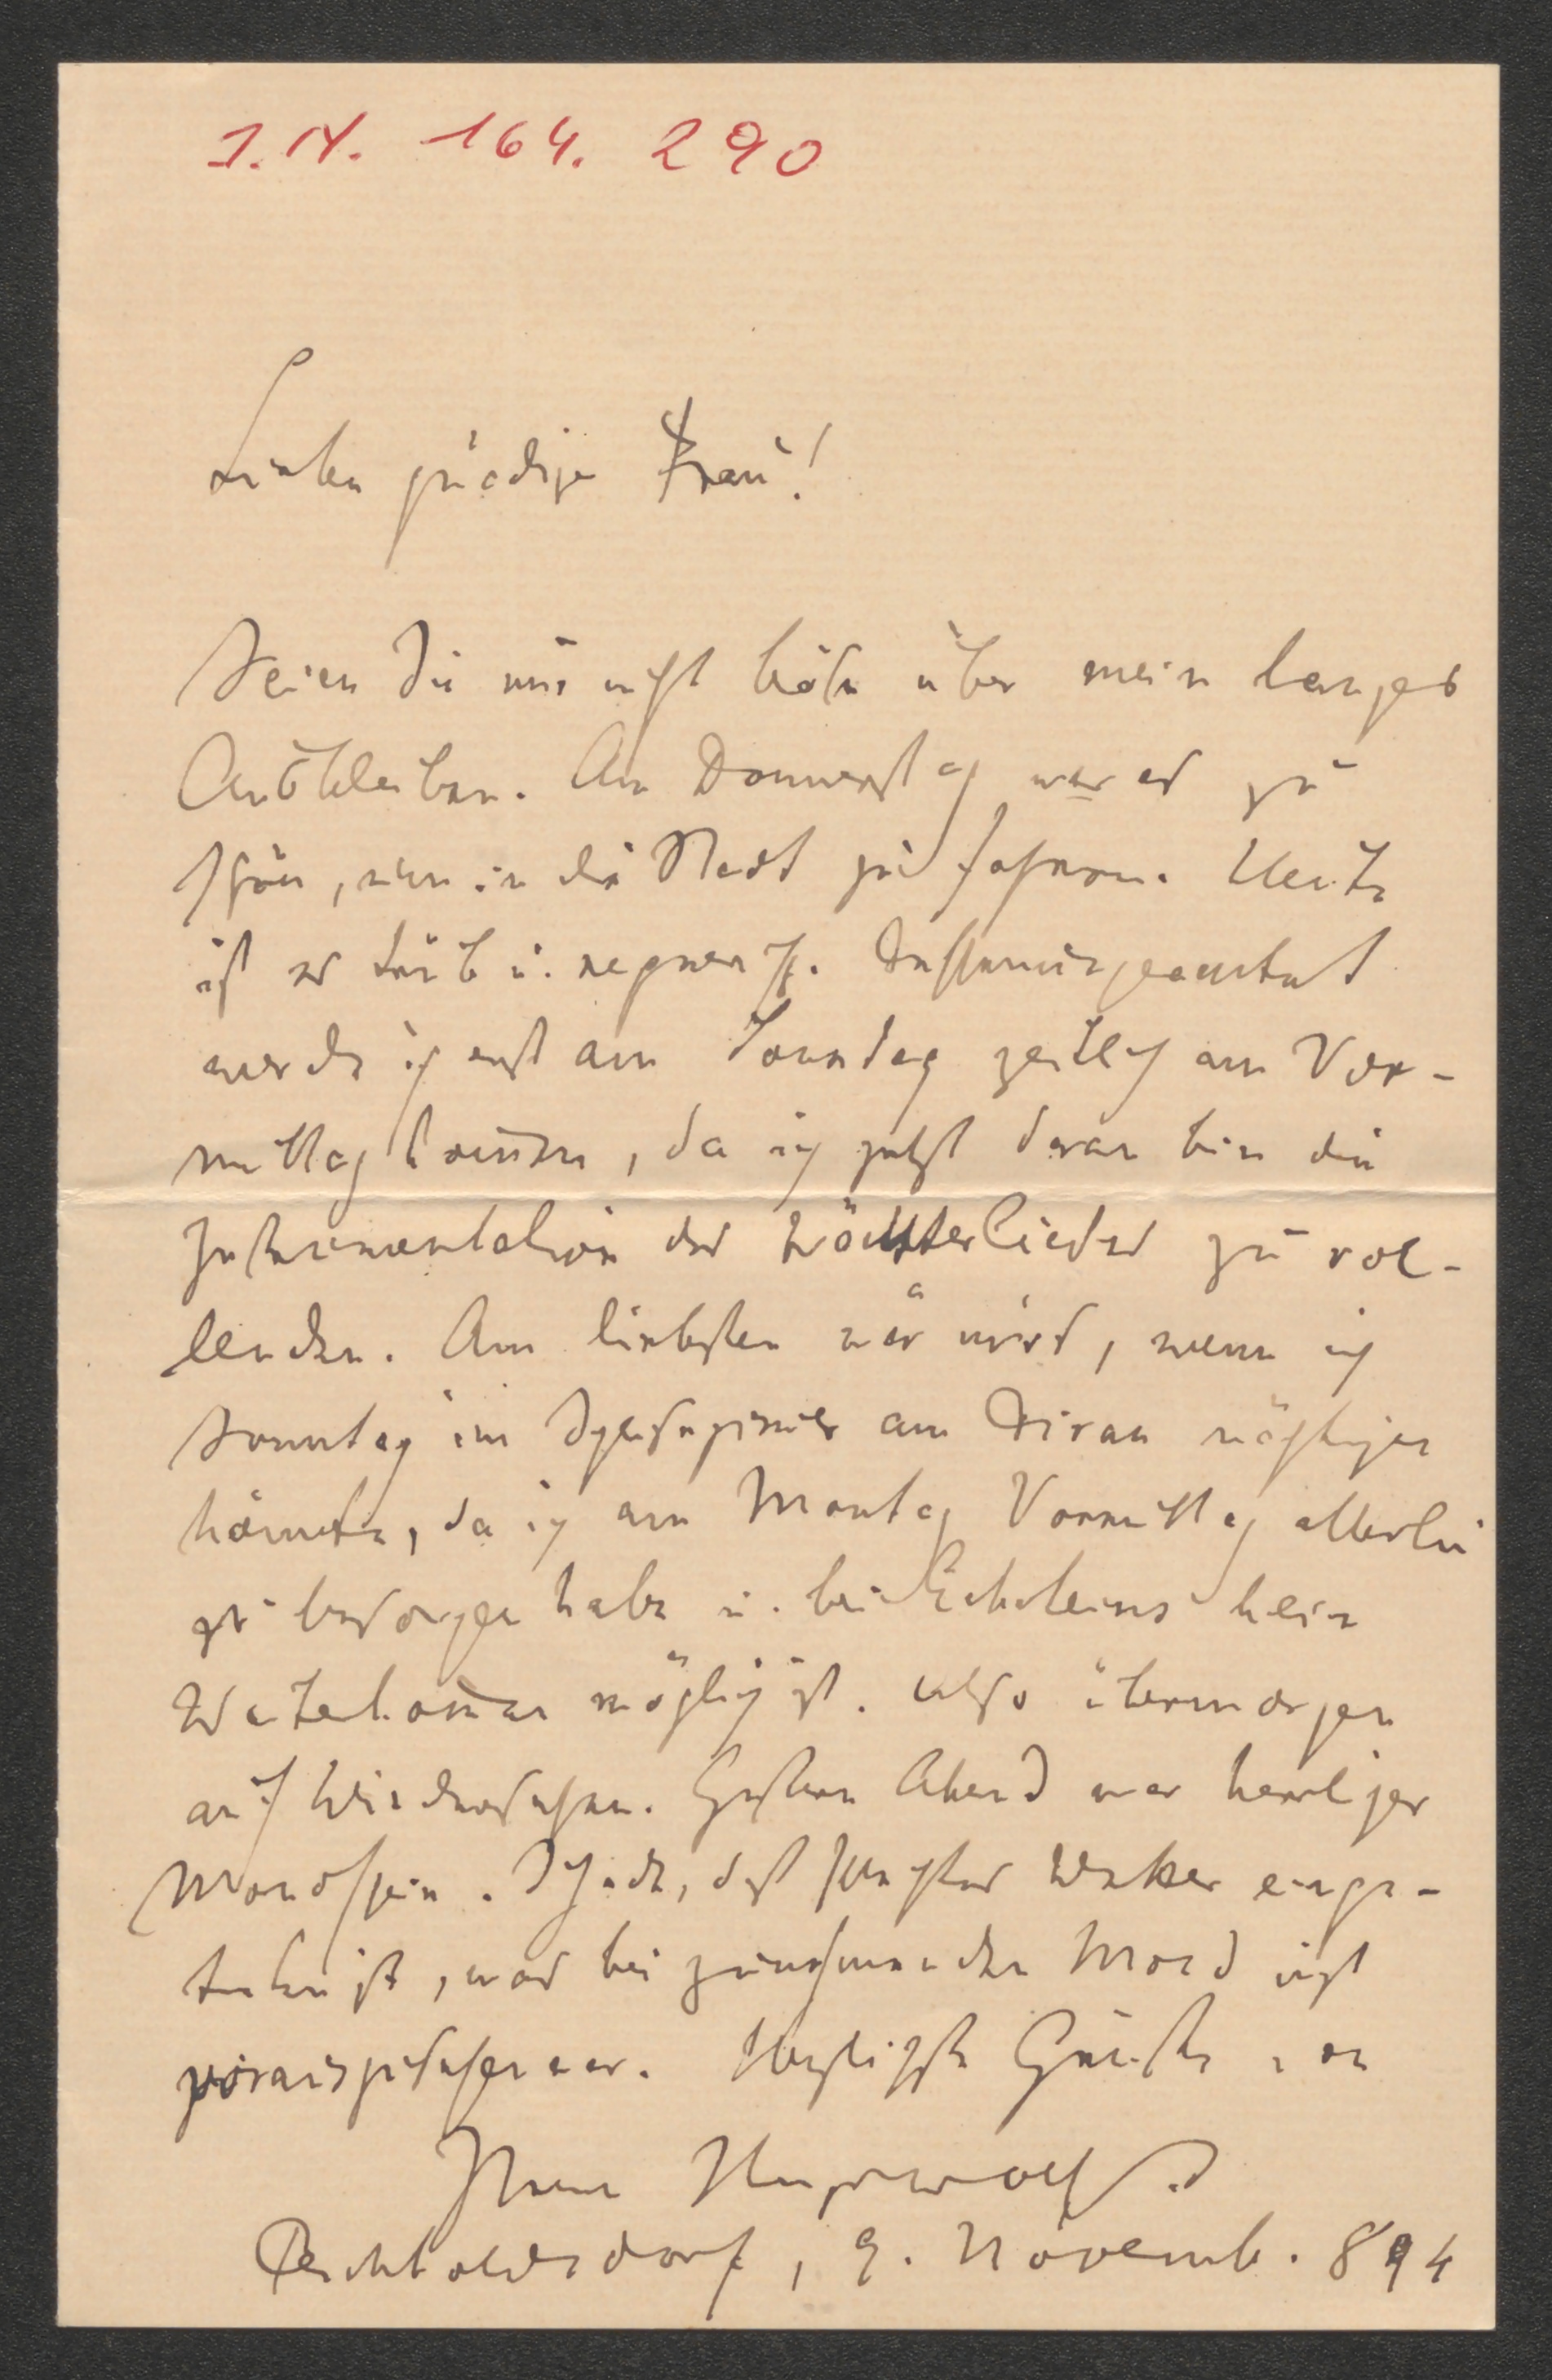 I.N. 164. 290
Liebe gnädige Frau!
Seien Sie mir nicht böse über mein langes
Ausbleiben. Am Donnerstag war es zu
schön, um in die Stadt zu fahren. Heute
ist es trüb u. regnerisch. Dessenungeachtet
werde ich erst am Sonntag zeitlich am Vor-
mittag kommen, da ich jetzt daran bin die
Instrumentation des Wächterliedes zu vol-
lenden. Am liebsten wär mirs, wenn ich
Sonntag im Speisezimmer am Divan nächtigen
könnte, da ich am Montag Vormittag allerlei
zu besorgen habe u. bei Ecksteins kein
möglich ist. Also übermorgen
auf Wiedersehen. Gestern Abend war herrlicher
Mondschein. Schade, daß schlechtes Wetter einge-
treten ist, was bei zunehmenden Mond nicht
vorauszusehen war. Herzlichste Grüße von
Ihrem Hugo Wolf
Perchtoldsdorf, 9. Novemb. 894